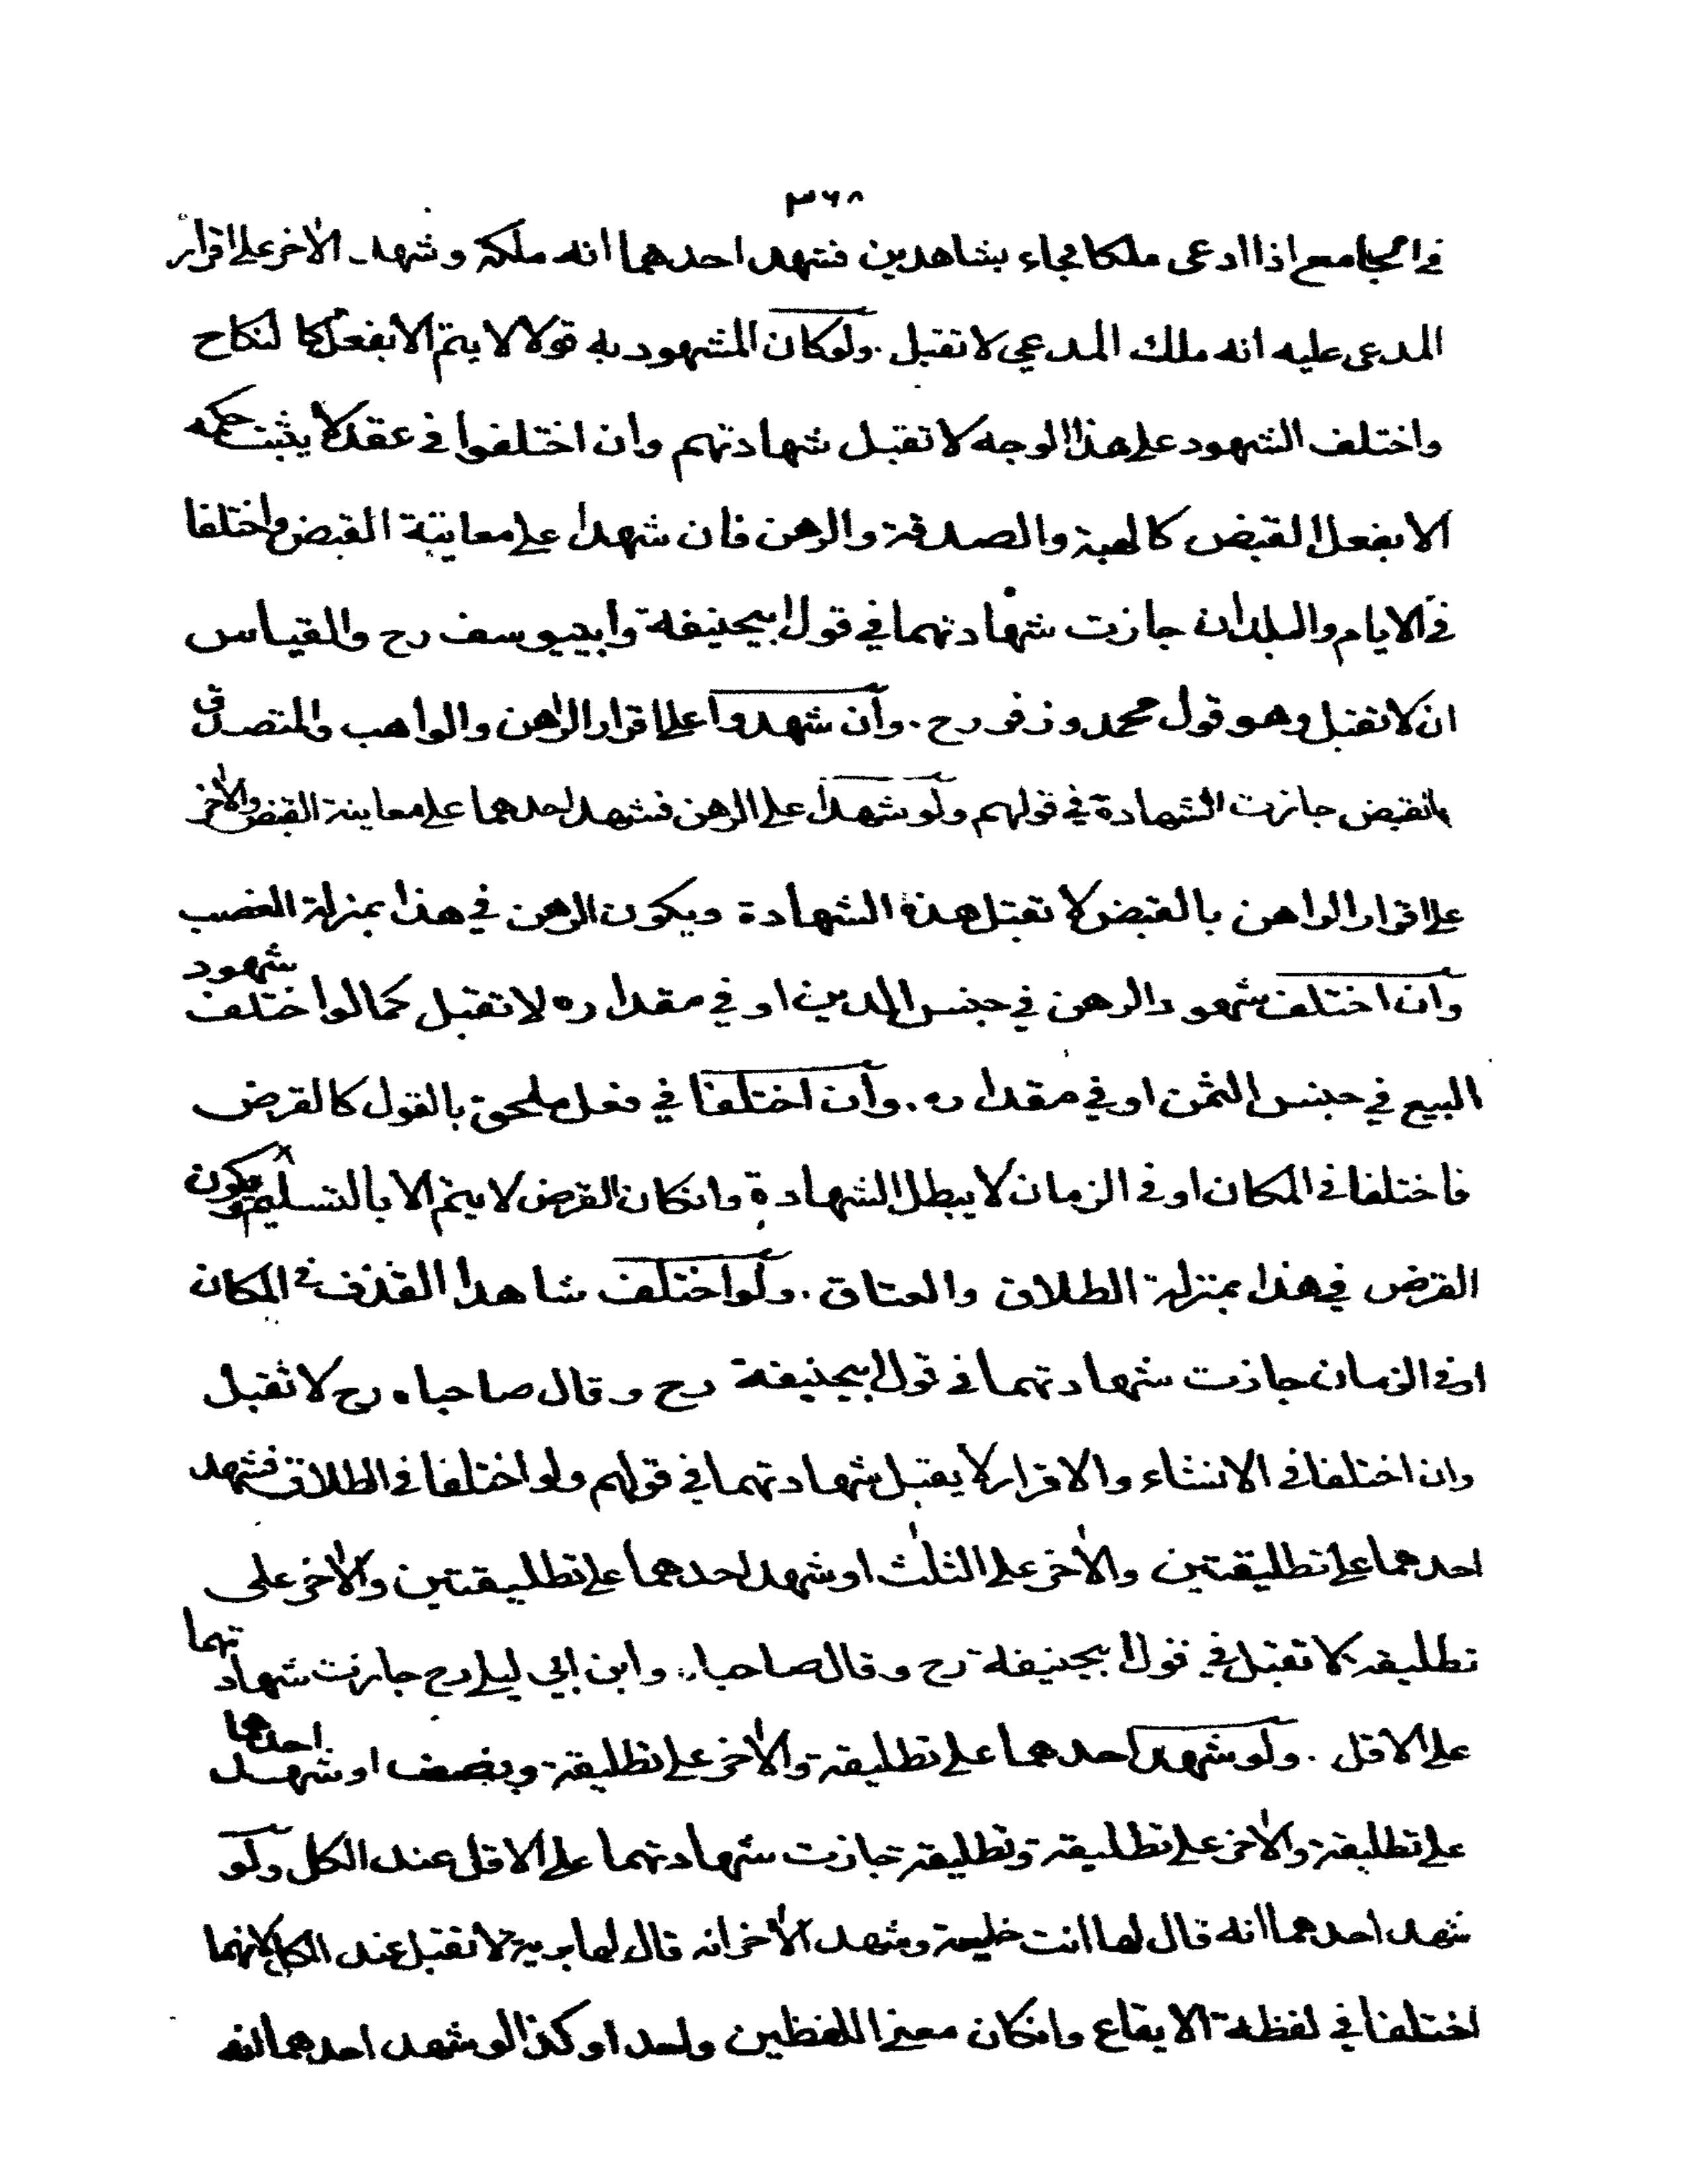 ٣٦٨
في الجامع اذا ادعى ملكا فجاء بشاهدين فشهد احدهما انه ملكه وشهد الاخر على اقرار
المدعى عليه انه ملك المدعي لا تقبل . ولو كان المشهود به قولا لا يتم الا بفعل كالنكاح
واختلف الشهود على هذا الوجه لا تقبل شهادتهم وان اختلفوا في عقد لا يثبت حكمه
الا بفعل القبض كالهبة والصدقة والرهن فان شهدا على معاينة القبض واختلفا
في الايام والبلدان جازت شهادتهما في قول ابيحنيفة وابييوسف رح والقياس
ان لا تقبل وهو قول محمد وزفر رح . وان شهدوا على اقرار الراهن والواهب والمتصدق
بالقبض جازت الشهادة في قولهم ولو شهدا على الرهن فشهد احدهما على معاينة القبض والاخر
على اقرار الراهن بالقبض لا تقبل هذه الشهادة ويكون الرهن في هذا بمنزلة الغصب
وان اختلف شهود الرهن في جنس الدين او في مقداره لا تقبل كما لو اختلف شهود
البيع في جنس الثمن او في مقداره . وان اختلفا في فعل ملحق بالقول كالقرض
فاختلفا في المكان او في الزمان لا يبطل الشهادة وانكان القرض لا يتم الا بالتسليم ويكون
القرض في هذا بمنزلة الطلاق والعتاق . ولو اختلف شاهدا القذف في المكان
او في الزمان جازت شهادتهما في قول ابيحنيفة رح وقال صاحباه رح لا تقبل
وان اختلفا في الانشاء والاقرار لا يقبل شهادتهما في قولهم ولو اختلفا في الطلاق فشهد
احدهما على تطليقتين والاخر على الثلث او شهد احدهما على تطليقتين والاخر على
تطليقة لا تقبل في قول ابيحنيفة رح وقال صاحباه وابن ابي ليلى رح جازت شهادتهما
على الاقل . ولو شهد احدهما على تطليقة والاخر على تطليقة ونصف او شهد احدهما
على تطليقة والاخر على تطليقة وتطليقة جازت شهادتهما على الاقل عند الكل ولو
شهد احدهما انه قال لها انت خلية وشهد الاخر انه قال لها برية لا تقبل عند الكل لانهما
اختلفا في لفظة الايقاع وانكان معنى اللفظين واحدا وكذا لو شهد احدهما انه